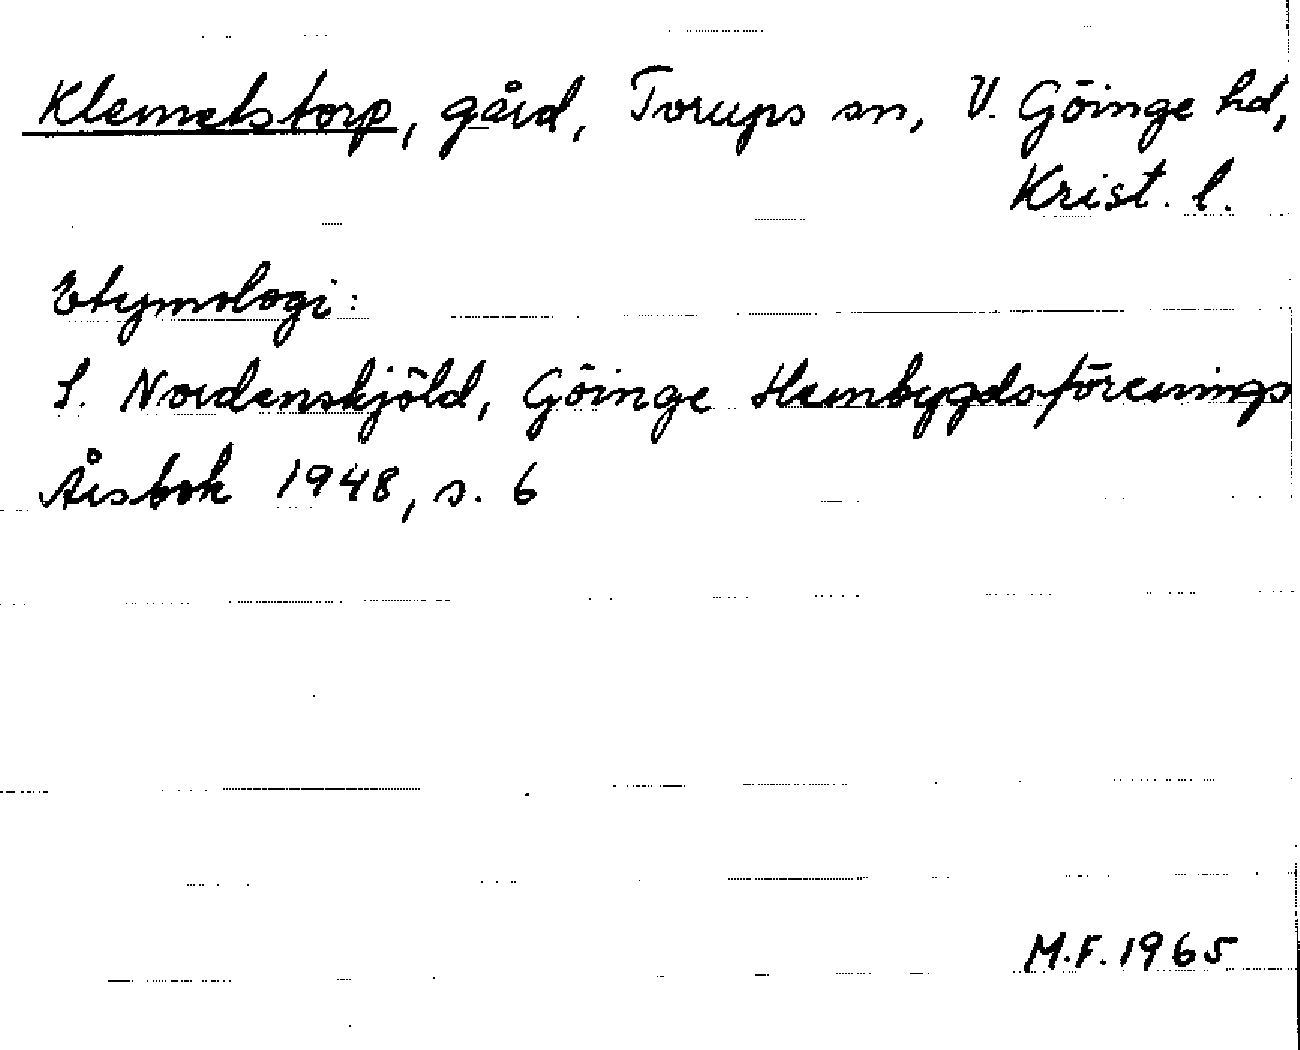 Klemetstorp, gård, Torups sn, V. Göinge hd,
Krist. l.
Etymologi:
S. Nordenskjöld, Göinge Hembygdsförenings
Årsbok 1948, s. 6
M.F. 1965